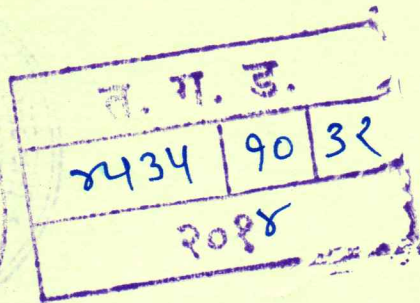 त. ग. ड.
४५३५ १० ३२
२०१४